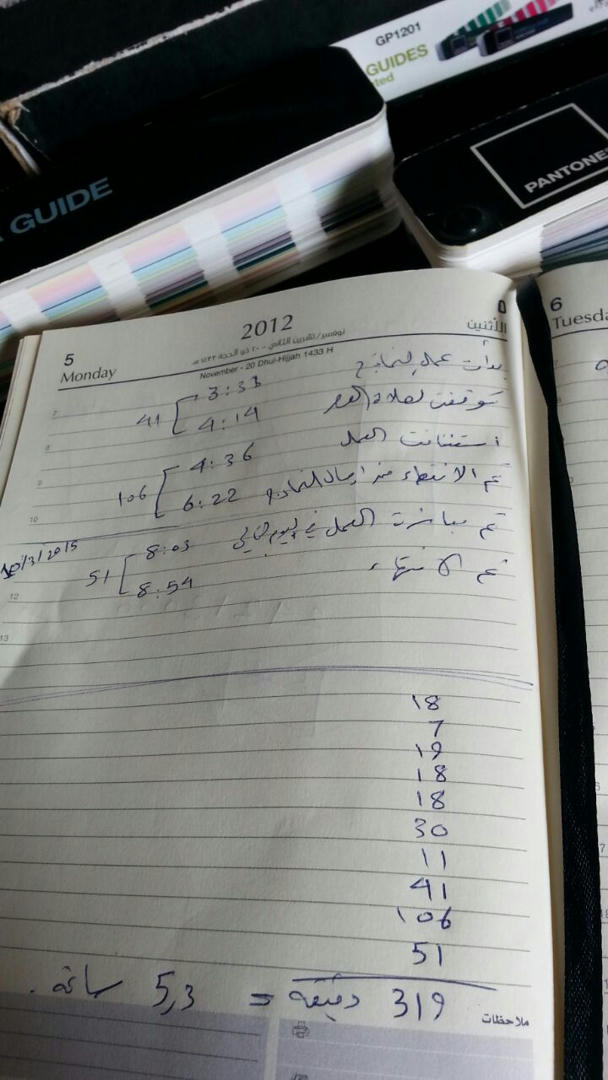 GP1201
GUIDES
GUIDE
PANTONE
2012
5
Monday
نوفمبر/ تشرين الثاني - ٢٠ ذو الحجة ١٤٣٣ هـ
November - 20 Dhul-Hijjah 1433 H
الأثنين
6
Tuesda
بدأت عمل النماذج
3:33
41
توقفت لصلاة العصر
4:14
استئنافت العمل
4:36
106
تم الانتهاء من ارسال النماذج
6:22
تم مباشرت العمل في اليوم التالي
8:03
10/3/2015
51
تم الانتهاء
8:54
18
7
19
18
18
30
11
41
106
51
319 دقيقة = 5,3 ساعة.
ملاحظات